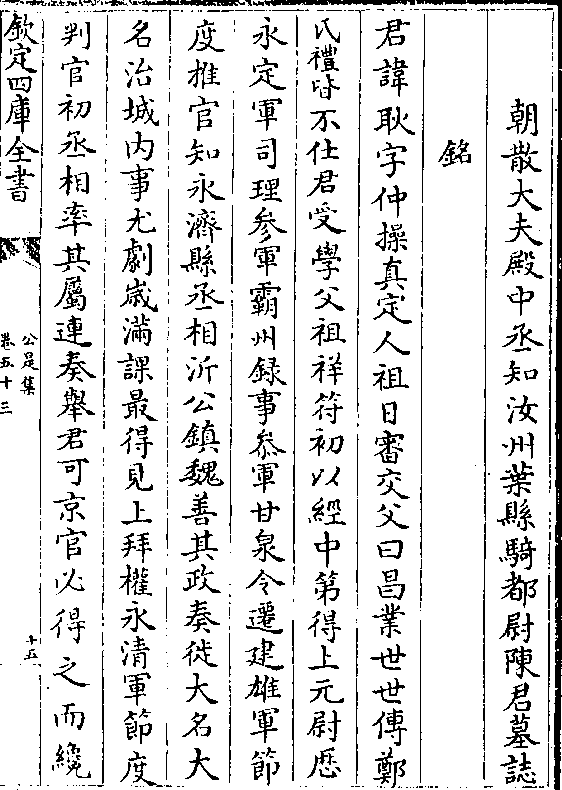 朝散大夫殿中丞知汝州葉縣騎都尉陳君墓誌
銘
君諱耿字仲操真定人祖曰審交父曰昌業世世傳鄭
氏禮皆不仕君受學父祖祥符初以經中第得上元尉歴
永定軍司理參軍霸州録事叅軍甘泉令遷建雄軍節
度推官知永濟縣丞相沂公鎮魏善其政奏徙大名大
名治城内事尤劇歳滿課最得見上拜權永清軍節度
判官初丞相率其屬連奏舉君可京官必得之而纔
欽定四庫全書
公是集
卷五十三
十五